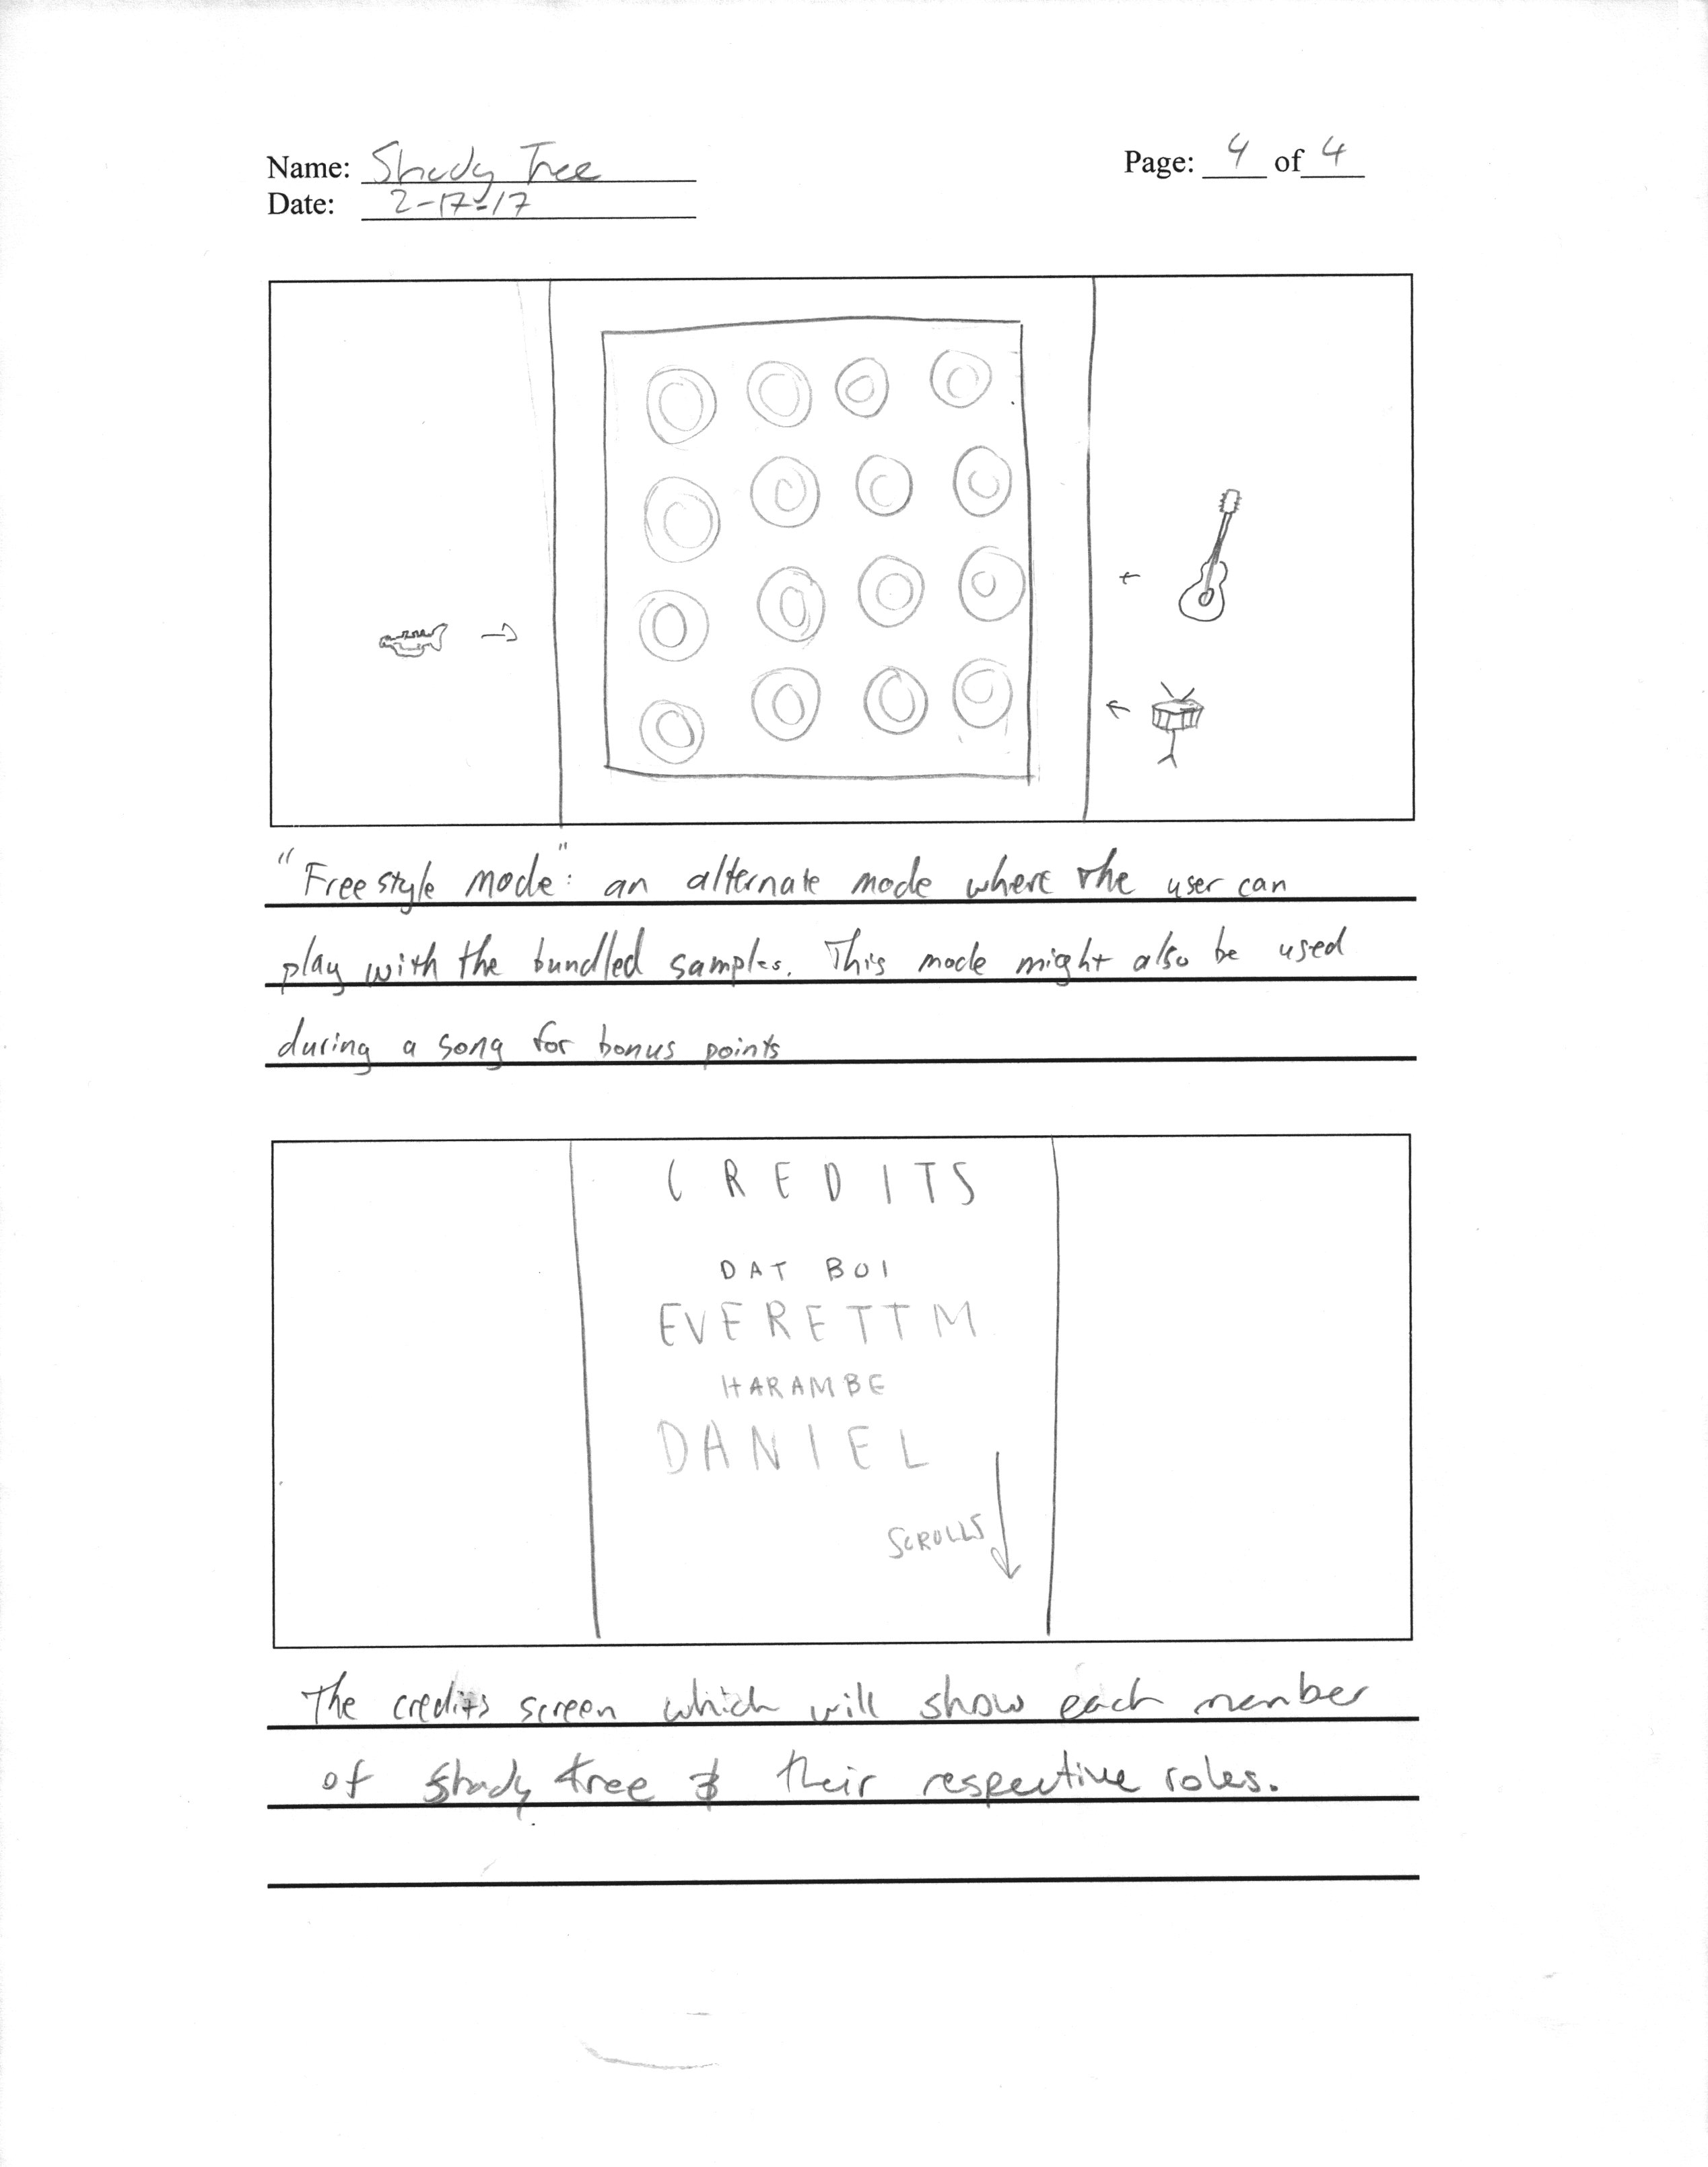 Name: Shady Tree
Page: 4 of 4
Date: 2-17-17
"Freestyle mode": an alternate mode where the user can
play with the bundled samples. This mode might also be used
during a song for bonus points
CREDITS
DAT BOI
EVERETT M
HARAMBE
DANIEL
SCROLLS
The credits screen which will show each member
of Shady tree & their respective roles.